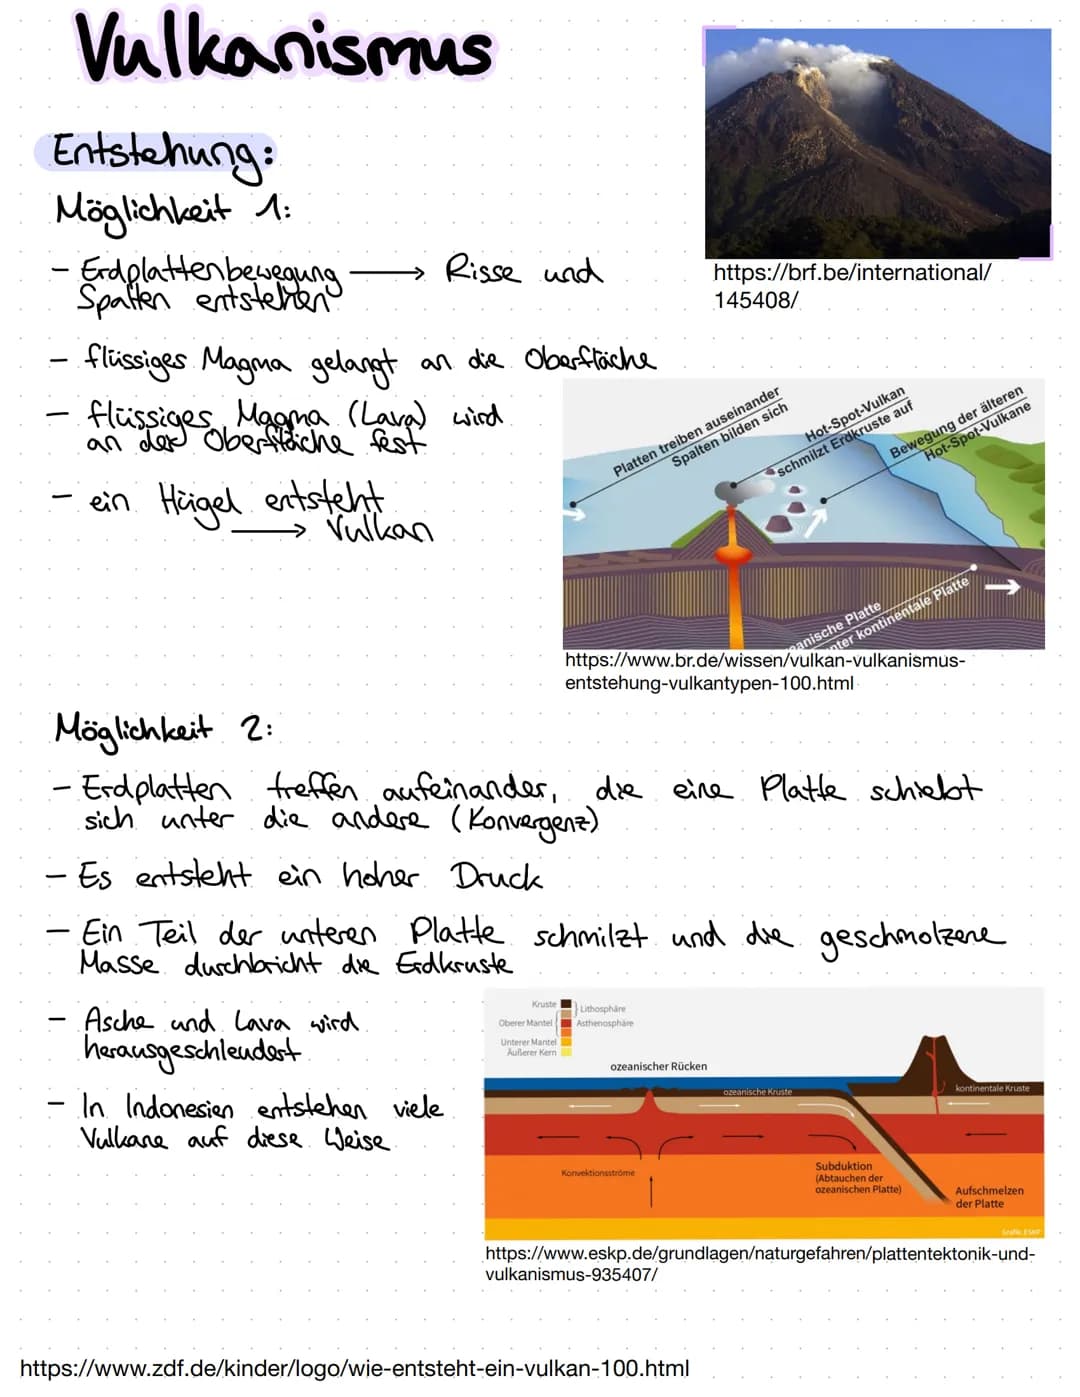 Vulkanismus
https://brf.be/international/
145408/
Entstehung:
Möglichkeit 1:
- Erdplattenbewegung → Risse und
Spalten entstehen
- flüssiges Magma gelangt an die Oberfläche
- flüssiges Magma (Lava) wird
an der Oberfläche fest
- ein Hügel entsteht
→ Vulkan
Platten treiben auseinander
Spalten bilden sich
Hot-Spot-Vulkan
schmilzt Erdkruste auf
Bewegung der älteren
Hot-Spot-Vulkane
anische Platte
nter kontinentale Platte
https://www.br.de/wissen/vulkan-vulkanismus-
entstehung-vulkantypen-100.html
Möglichkeit 2:
- Erdplatten treffen aufeinander, die eine Platte schiebt
sich unter die andere (Konvergenz)
- Es entsteht ein hoher Druck
- Ein Teil der unteren Platte schmilzt und die geschmolzene
Masse durchbricht die Erdkruste
- Asche und Lava wird
herausgeschleudert
- In Indonesien entstehen viele
Vulkane auf diese Weise
Kruste
Lithosphäre
Oberer Mantel
Asthenosphäre
Unterer Mantel
Äußerer Kern
ozeanischer Rücken
ozeanische Kruste
kontinentale Kruste
Konvektionsströme
Subduktion
(Abtauchen der
ozeanischen Platte)
Aufschmelzen
der Platte
Grafik: ESKP
https://www.eskp.de/grundlagen/naturgefahren/plattentektonik-und-
vulkanismus-935407/
https://www.zdf.de/kinder/logo/wie-entsteht-ein-vulkan-100.html